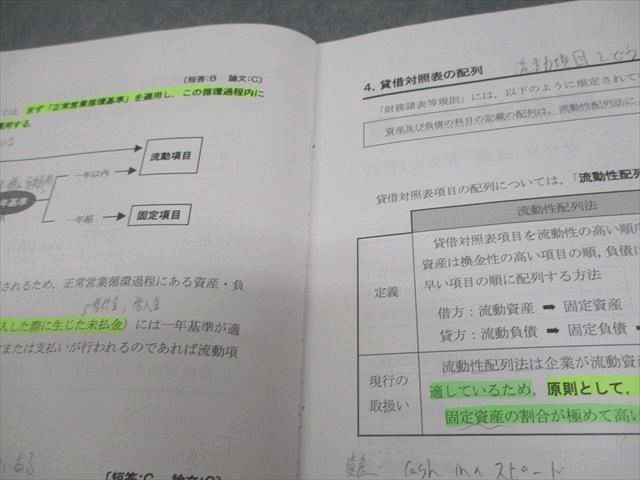 〔短答:B 論文:C〕
は, まず「正常営業循環基準」を適用し, この循環過程内に
用する。
流動項目
一年以内
年基準
一年超
固定項目
されるため, 正常営業循環過程にある資産・負
貸付金, 借入金
入した際に生じた未払金)には一年基準が適
または支払いが行われるのであれば流動項
ある
〔短答:C 論文:C〕
4. 貸借対照表の配列
流動項目
「財務諸表等規則」には, 以下のように規定されて
資産及び負債の科目の記載の配列は, 流動性配列法に
貸借対照表項目の配列については,「流動性配列
流動性配列法
定義
貸借対照表項目を流動性の高い順序
資産は換金性の高い項目の順, 負債に
早い項目の順に配列する方法
借方:流動資産 ➡ 固定資産
貸方:流動負債 ➡ 固定負債
現行の
取扱い
流動性配列法は企業が流動資産
適しているため, 原則として,
固定資産の割合が極めて高い
cash in スピード